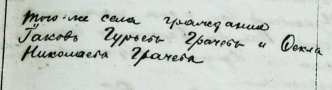 того-же села гражданинъ
Iаковъ Гурьевъ Грачевъ и Фекла
Николаева Грачева